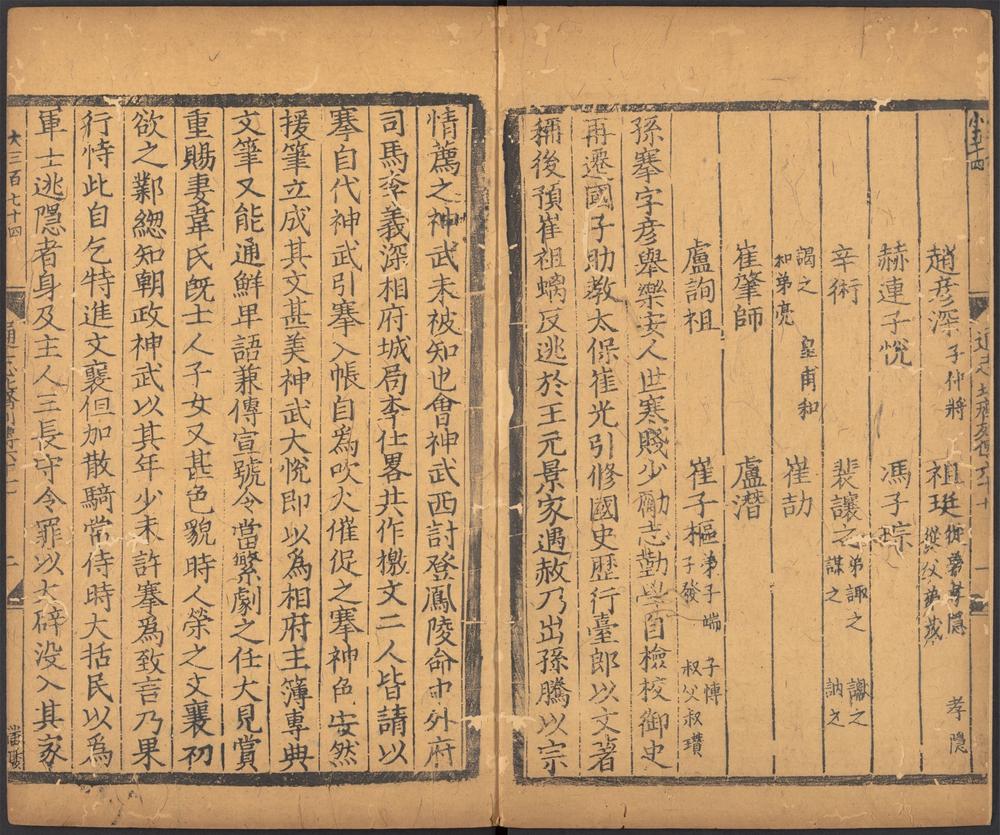 小五十四
趙彦深 子仲將 祖珽 從弟孝隱 從父弟茂 孝隱
赫連子悅 馮子琮
辛術 裴讓之 弟諏之 讞之 謀之 訥之
謁之 皇甫和 和弟亮 崔劼
崔肇師 盧潛
盧詢祖 崔子樞 弟子端 子博 子發 叔父叔瓚
孫搴字彦舉樂安人世寒賤少勵志勤學自檢校御史
再遷國子助教太保崔光引修國史歷行臺郎以文著
稱後預崔祖螭反逃於王元景家遇赦乃出孫騰以宗
情薦之神武未被知也會神武西討登鳳陵命中外府
司馬李義深相府城局李仕畧共作檄文二人皆請以
搴自代神武引搴入帳自爲吹火催促之搴神色安然
援筆立成其文甚美神武大悅即以爲相府主簿專典
文筆又能通鮮卑語兼傳宣號令當繁劇之任大見賞
重賜妻韋氏旣士人子女又甚色貌時人榮之文襄初
欲之鄴緫知朝政神武以其年少未許搴爲致言乃果
行恃此自乞特進文襄但加散騎常侍時大括民以爲
軍士逃隱者身及主人三長守令罪以大辟没入其家
大三百七十四